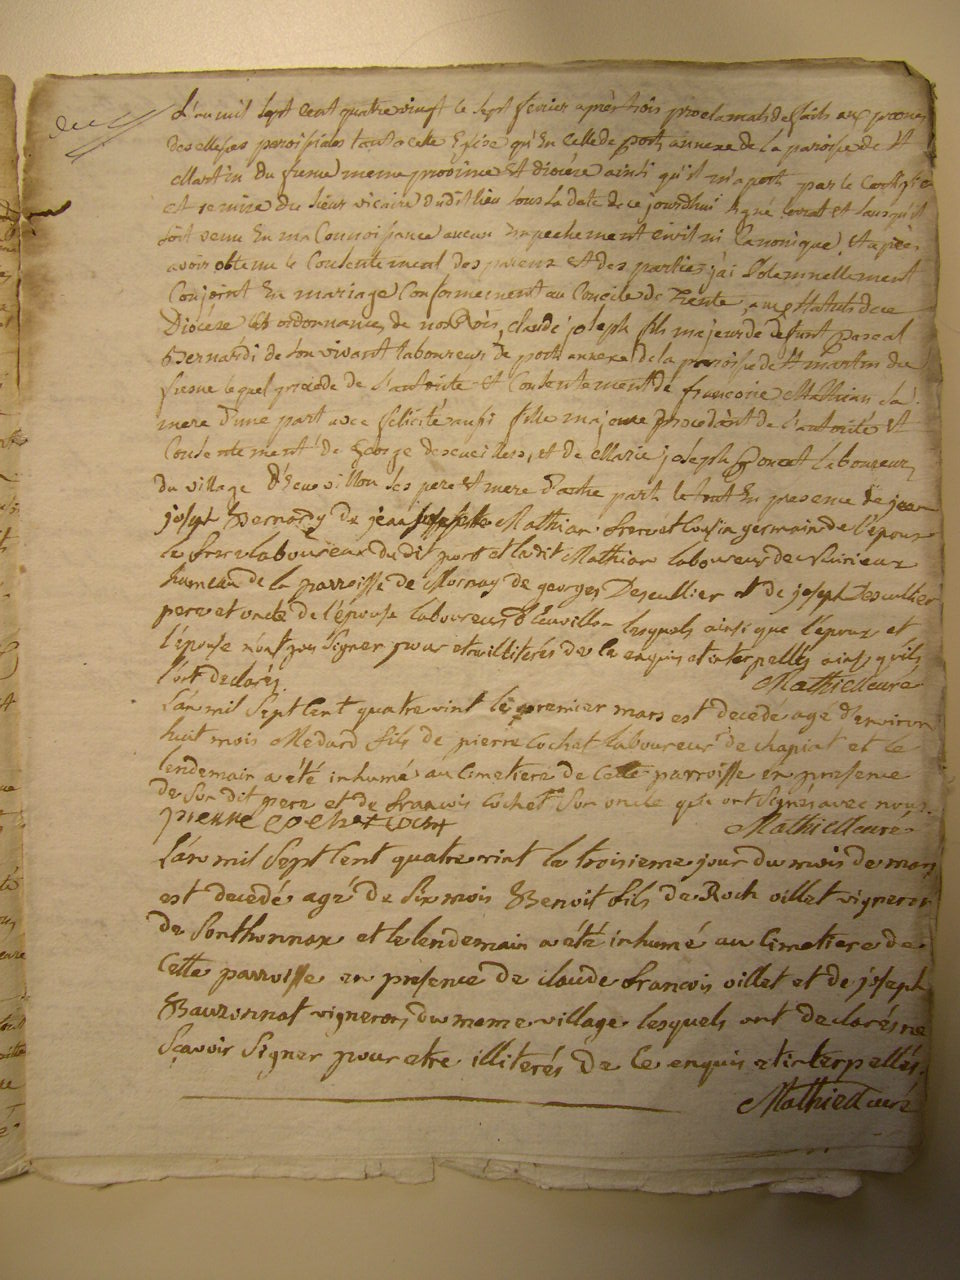 L'an mil sept cent quatre vingt le sept fevrier après trois proclamats de faits aux prones
des esses paroisiales tant a cette Eglise qu'En celle de port, annexe de la paroisse de St
Martin du fresne meme province Et diocèse ainsi qu'il m'aport par le Certificat
Et remise du sieur vicaire dudit lieu sous la date de ce jourdhui signé et sans qu'il
soit venu En ma Connoissance aucun Empechement civil ni Canonique, Et après
avoir obtenu le Consentement des parens Et des parties j'ai solemnellement
Conjoint En mariage Conformement au Concile de Trente, aux statuts de ce
Diocèse Et ordonnances de nos Rois, claude joseph fils majeur de defunt pascal
Bernardi de son vivant laboureur de port annexe de la paroisse de St Martin du
fresne lequel procede de l'autorite Et Consentement de francoise Mathian sa
mere d'une part avec felicité aussi fille majeure procedant de l'autorité Et
Consentement de George Et de Marie joseph poncet laboureur
du village d'heuvillon ses pere Et mere d'autre part le tout En presence de jean
joseph Bernardy de jean Mathian frere et cousin germain de l'epoux
le frere laboureur dudit port et ledit Mathian laboureur de
hameau de la parroisse de Mornay de georges Descullier et de joseph Descullier
pere et oncle de l'épouse laboureurs lesquels ainsi que l'époux et
l'épouse n'ont pas signer pour etre illiterés de ce enquis et interpellés ainsi qu'ils
l'ont declarés Mathieu curé
L'an mil sept cent quatre vint le premier mars est decedé agé d'environ
huit mois Médard fils de pierre Cochet laboureur de chapiat et le
lendemain a été inhumé au cimetiere de cette parroisse en presence
de son dit pere et de francois Cochet son oncle qui ont signés avec nous
pierre cochet Mathieu curé
L'an mil sept cent quatre vint le troisieme jour du mois de mars
est decedé agé de six mois Benoit fils de Roch oillet vigneron
de Sonthonnax et le lendemain a été inhumé au cimetiere de
cette parroisse en presence de claude francois oillet et de joseph
Bauronnat vignerons du meme village lesquels ont declarés ne
scavoir signer pour etre illiterés de ce enquis et interpellés
Mathieu curé